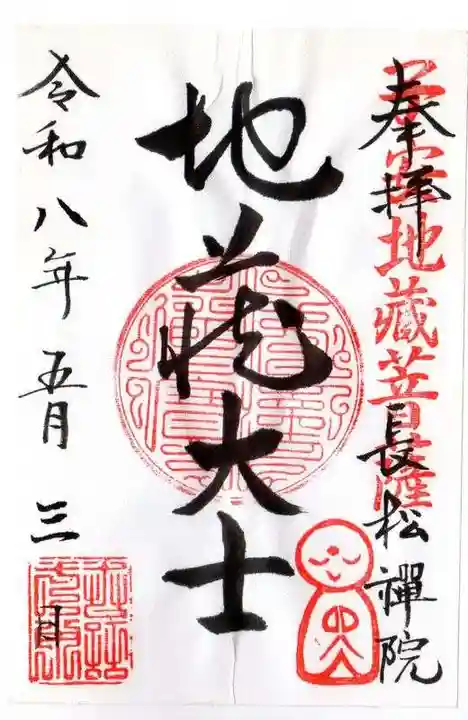 奉拝
地蔵菩薩
長松禅院
地蔵大士
令和八年五月三日